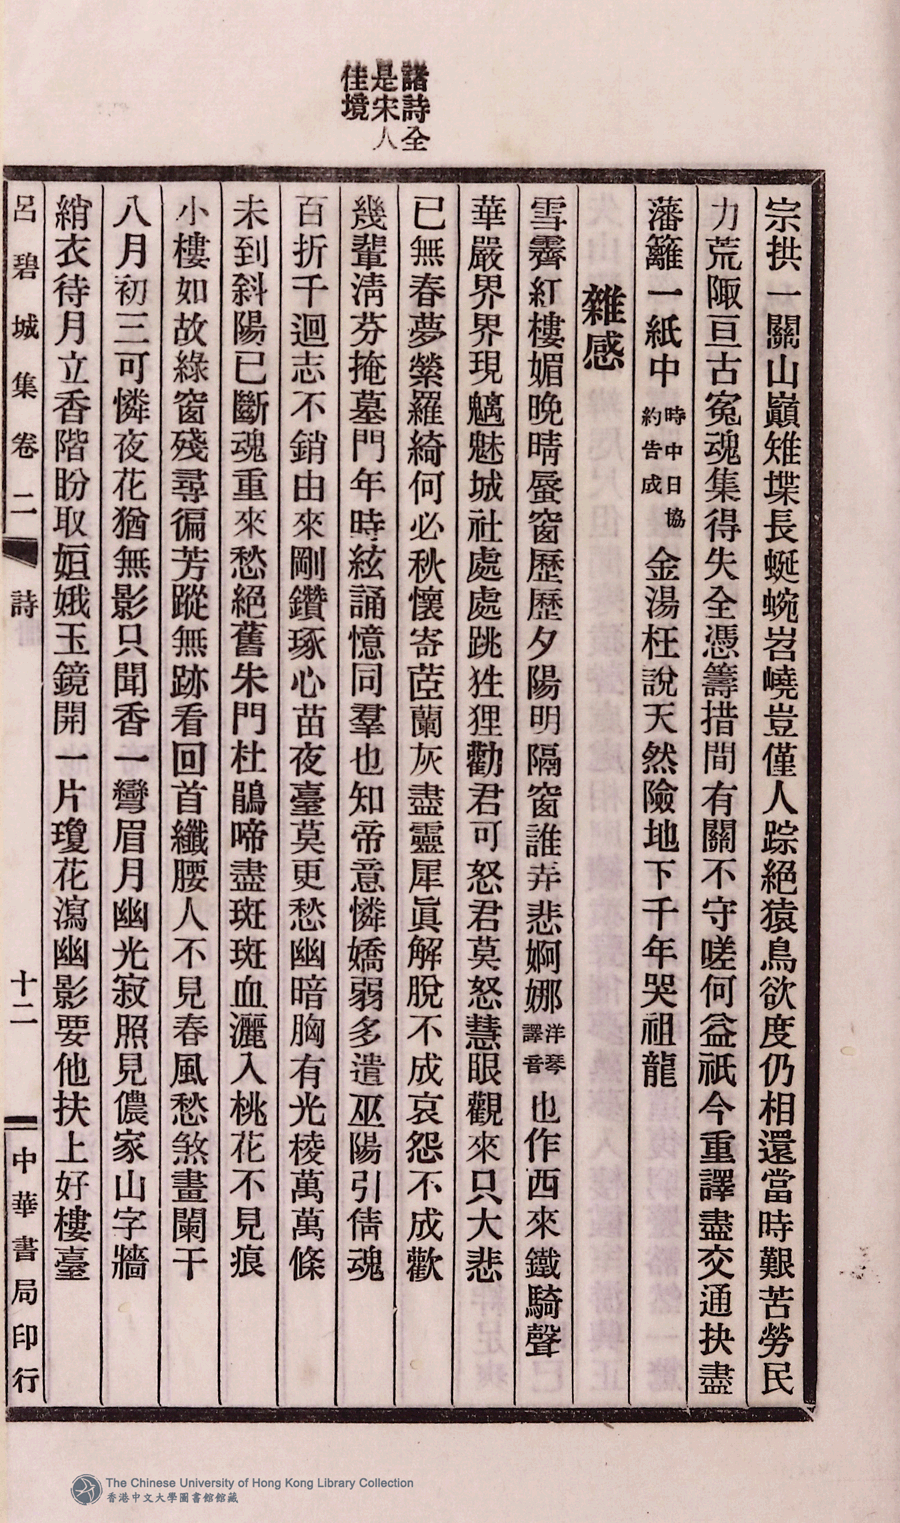 諸詩全
是宋人
佳境
宗拱一關山巔雉堞長蜒蜿岧嶢豈僅人踪絕猿鳥欲度仍相還當時艱苦勞民
力荒陬亘古冤魂集得失全憑籌措間有關不守嗟何益祇今重譯盡交通抉盡
藩籬一紙中時中日協約告成金湯枉說天然險地下千年哭祖龍
雜感
雪霽紅樓媚晚晴蜃窗歷歷夕陽明隔窗誰弄悲婀娜洋琴譯音也作西來鐵騎聲
華嚴界界現魑魅城社處處跳狌狸勸君可怒君莫怒慧眼觀來只大悲
已無春夢縈羅綺何必秋懷寄茝蘭灰盡靈犀眞解脫不成哀怨不成歡
幾輩淸芬掩墓門年時絃誦憶同羣也知帝意憐嬌弱多遣巫陽引倩魂
百折千迴志不銷由來剛鑽琢心苗夜臺莫更愁幽暗胸有光棱萬萬條
未到斜陽已斷魂重來愁絕舊朱門杜鵑啼盡斑斑血灑入桃花不見痕
小樓如故綠窗殘尋徧芳蹤無跡看回首纖腰人不見春風愁煞畫闌干
八月初三可憐夜花猶無影只聞香一彎眉月幽光寂照見儂家山字牆
綃衣待月立香階盼取姮娥玉鏡開一片瓊花瀉幽影要他扶上好樓臺
呂碧城集卷二 詩 十二 中華書局印行
The Chinese University of Hong Kong Library Collection
香港中文大學圖書館館藏